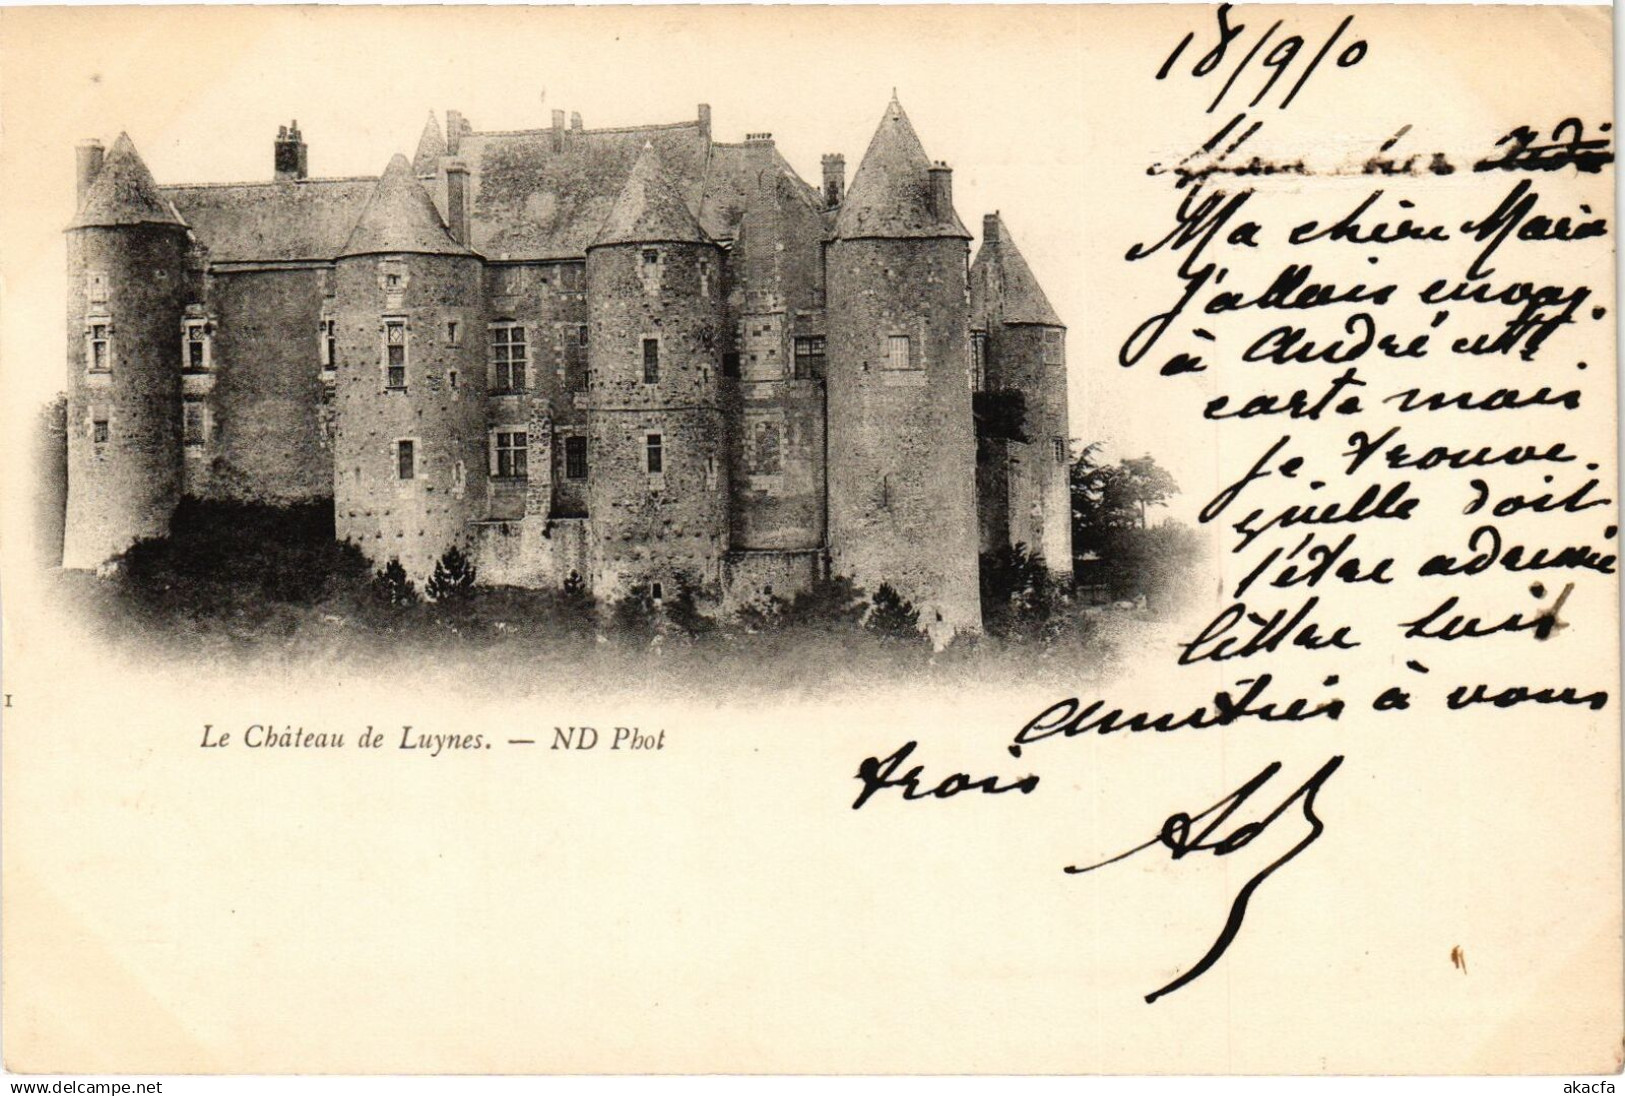 18/9/0
Mon cher André
Ma chère Marie
j'allais envoy.
à André cette
carte mais
je trouve
qu'elle doit
t'être adressée
lettre suit
Amitiés à vous
trois
AdB
1
Le Château de Luynes. — ND Phot
akacfa